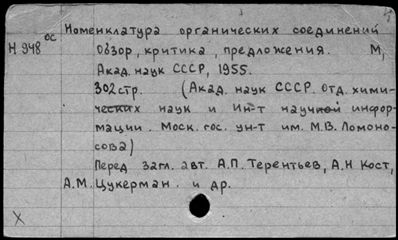 ос Номенклатура органических соединений
Н 948 Обзор, критика, предложения. М,
Акад. наук СССР, 1955.
302стр. (Акад. наук СССР. Отд. хими-
ческих наук и Ин-т научной инфор-
мации. Моск. гос. ун-т им. М.В. Ломоно-
сова)
Перед загл. авт. А.П. Терентьев, А.Н Кост,
А.М. Цукерман. и др.
X